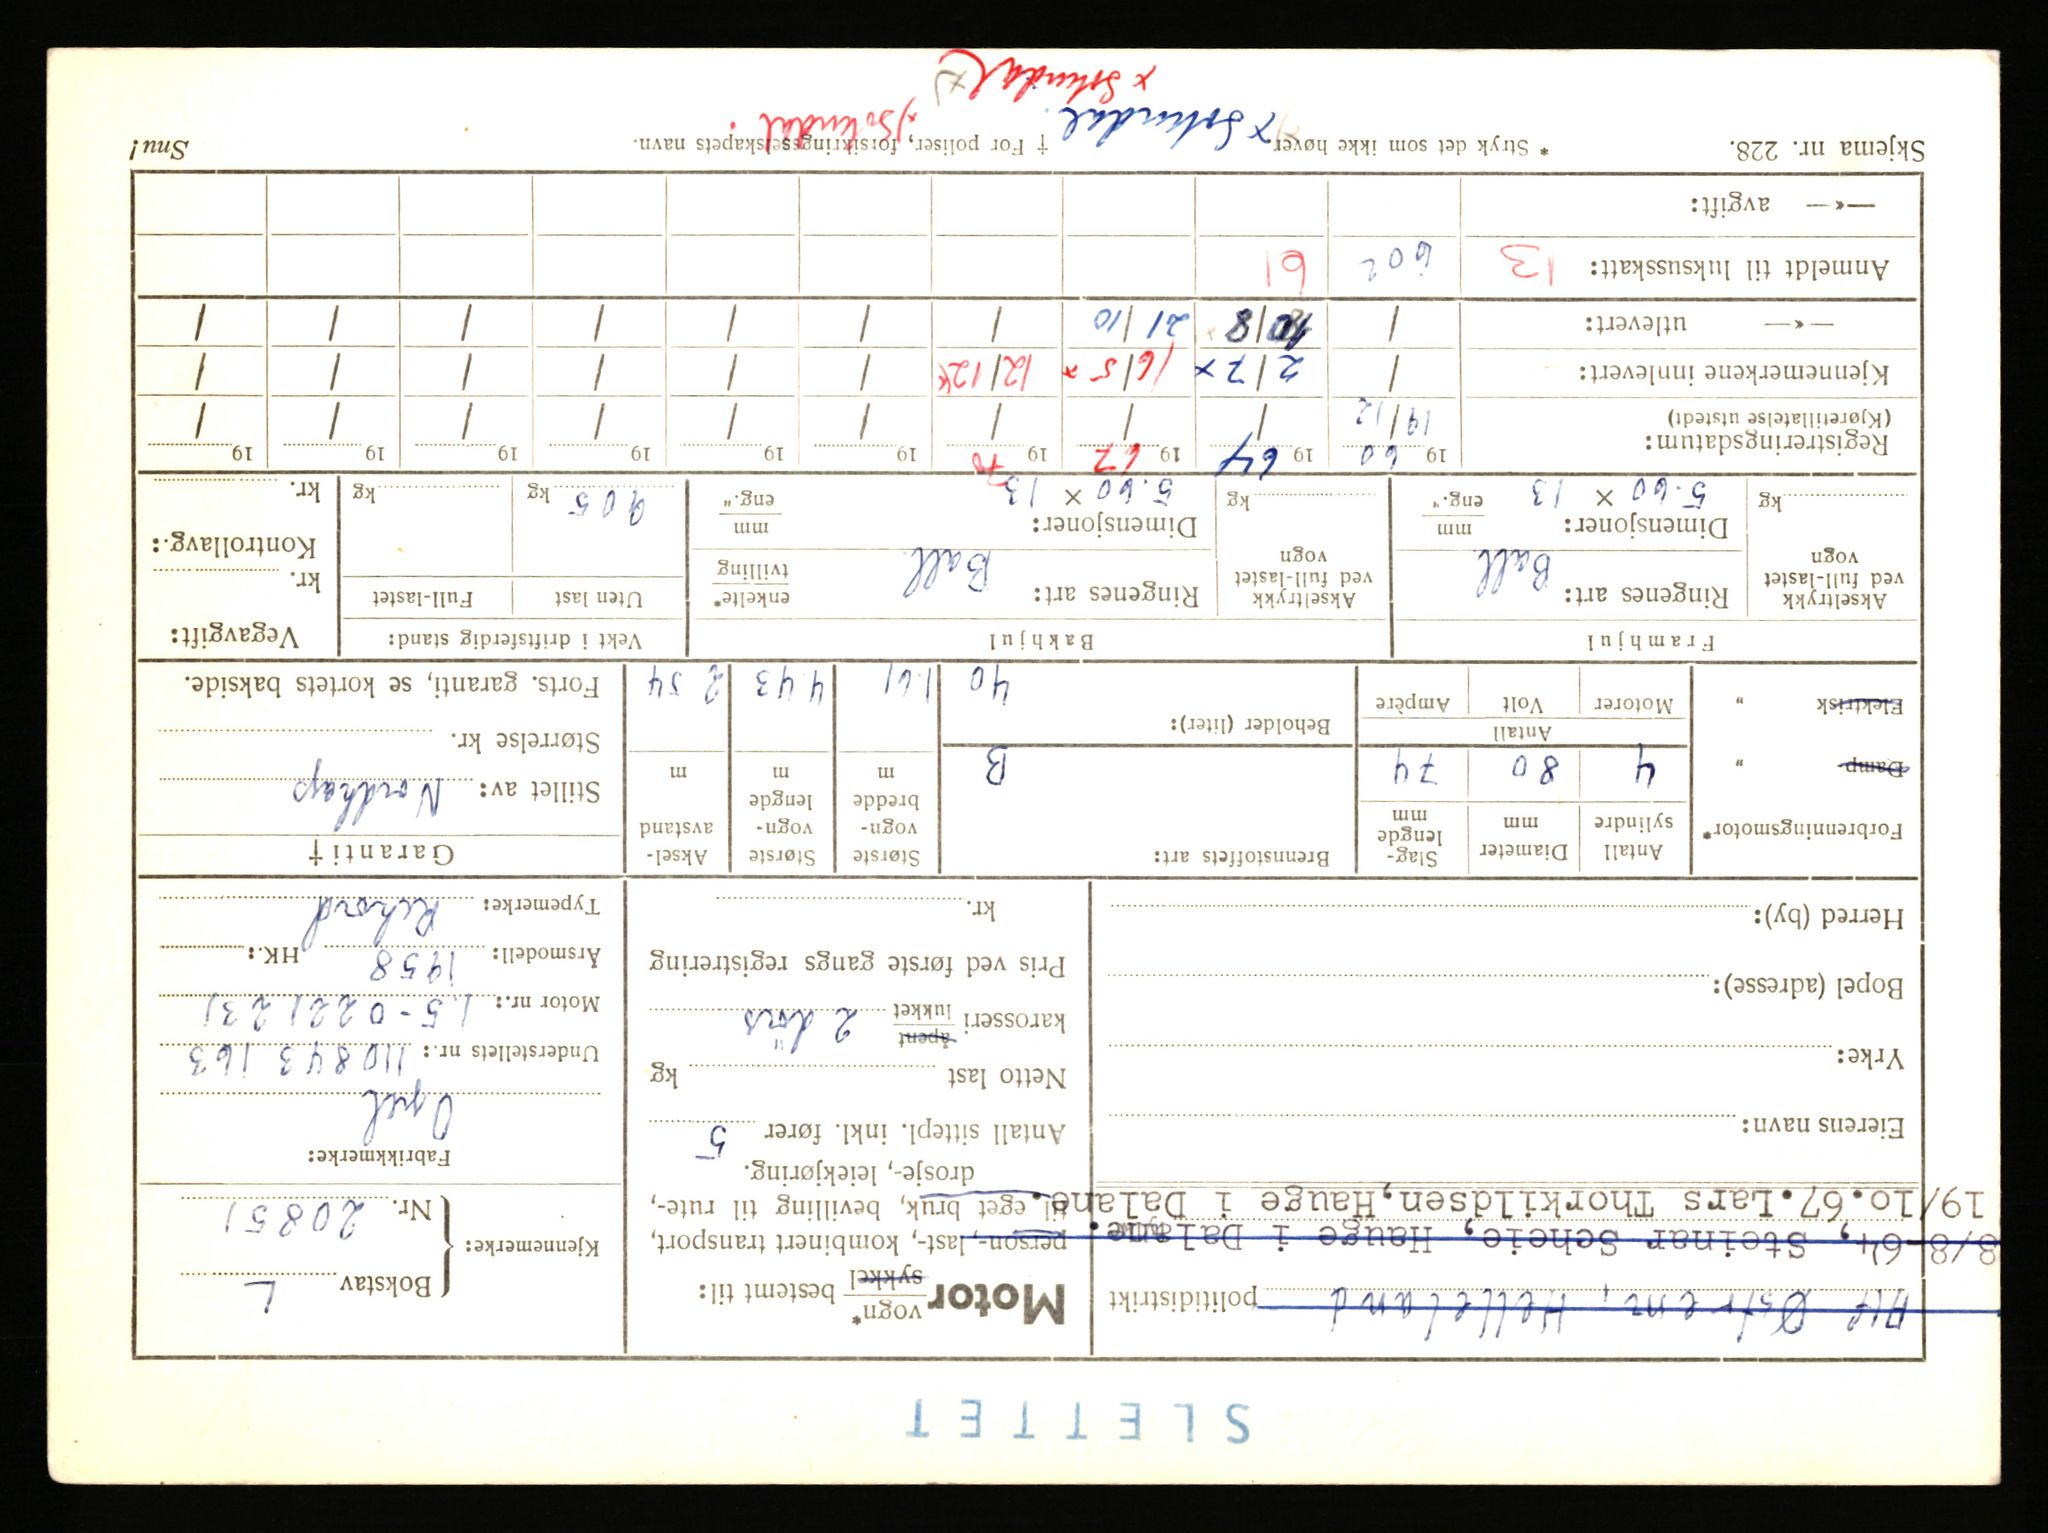 SLETTET
Alf Østrem, Helleland politidistrikt
8/8-64, Steinar Scheie, Hauge i Dalane.
19/10.67. Lars Thorkildsen, Hauge i Dalane.
Eierens navn:
Yrke:
Bopel (adresse):
Herred (by):
Motor vogn* sykkel bestemt til:
person-, last-, kombinert transport,
til eget bruk, bevilling til rute-,
drosje-, leiekjøring.
Antall sittepl. inkl. fører 5
Netto last kg
karosseri åpent lukket 2 dörs
Pris ved første gangs registrering
kr.
Kjennemerke: Bokstav L
Nr. 20851
Fabrikkmerke:
Opel
Understellets nr.: 110843163
Motor nr.: 1.5-0221231
Årsmodell: 1958 HK.:
Typemerke: Rekord
Forbrenningsmotor*
Damp "
Elektrisk "
Antall sylindre Diameter mm Slag-lengde mm
4 80 74
Antall
Motorer Volt Ampère
Brennstoffets art: B
Beholder (liter): 40
Største vogn-bredde m 1.61
Største vogn-lengde m 4.43
Aksel-avstand m 2 54
Garanti †
Stillet av: Nordkap
Størrelse kr.
Forts. garanti, se kortets bakside.
Framhjul
Akseltrykk ved full-lastet vogn kg
Ringenes art: Ball
Dimensjoner: mm eng."
5.60 × 13
Bakhjul
Akseltrykk ved full-lastet vogn kg
Ringenes art: Ball enkelte* tvilling
Dimensjoner: mm eng."
5.60 × 13
Vekt i driftsferdig stand:
Uten last Full-lastet
905 kg kg
Vegavgift:
kr.
Kontrollavg.:
kr.
Registreringsdatum: 1960 1964 1967 1970 19 19 19 19 19
(Kjøretillatelse utstedt) 19/12 / / / / / / / /
Kjennemerkene innlevert: / 2/7 x 16/5 x 12/12 x / / / / /
—«— utlevert: / 10/8 21/10 / / / / / /
Anmeldt til luksusskatt: 13 602 61
—«— avgift:
Skjema nr. 228. * Stryk det som ikke høver. † For poliser, forsikringsselskapets navn. Snu!
x Sokndal. x) Sokndal.
x Sokndal x)